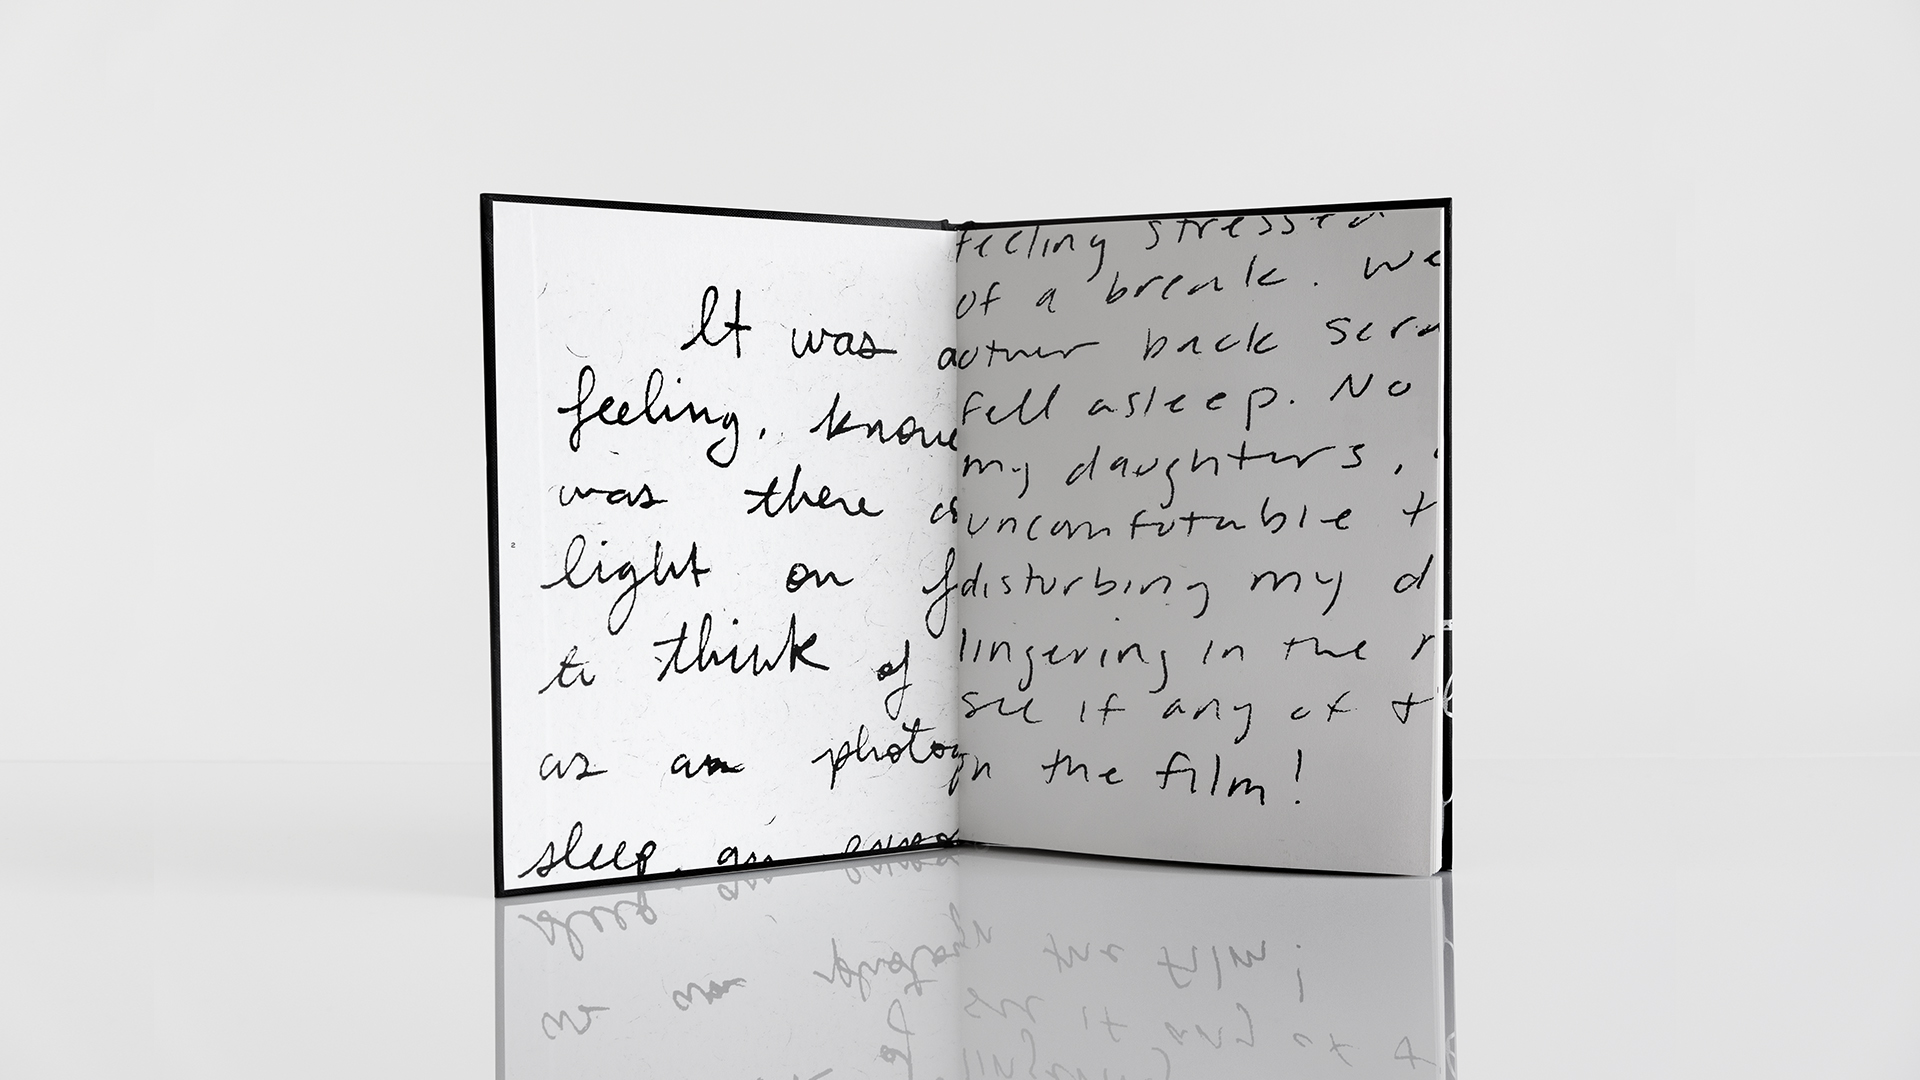 It was a
feeling, know
was there a
light on f
to think of
as an photog
sleep. an
2
feeling stressed
of a break. We
another back scra
fell asleep. No
my daughters,
uncomfortable t
disturbing my d
lingering in the r
see if any of t
on the film!